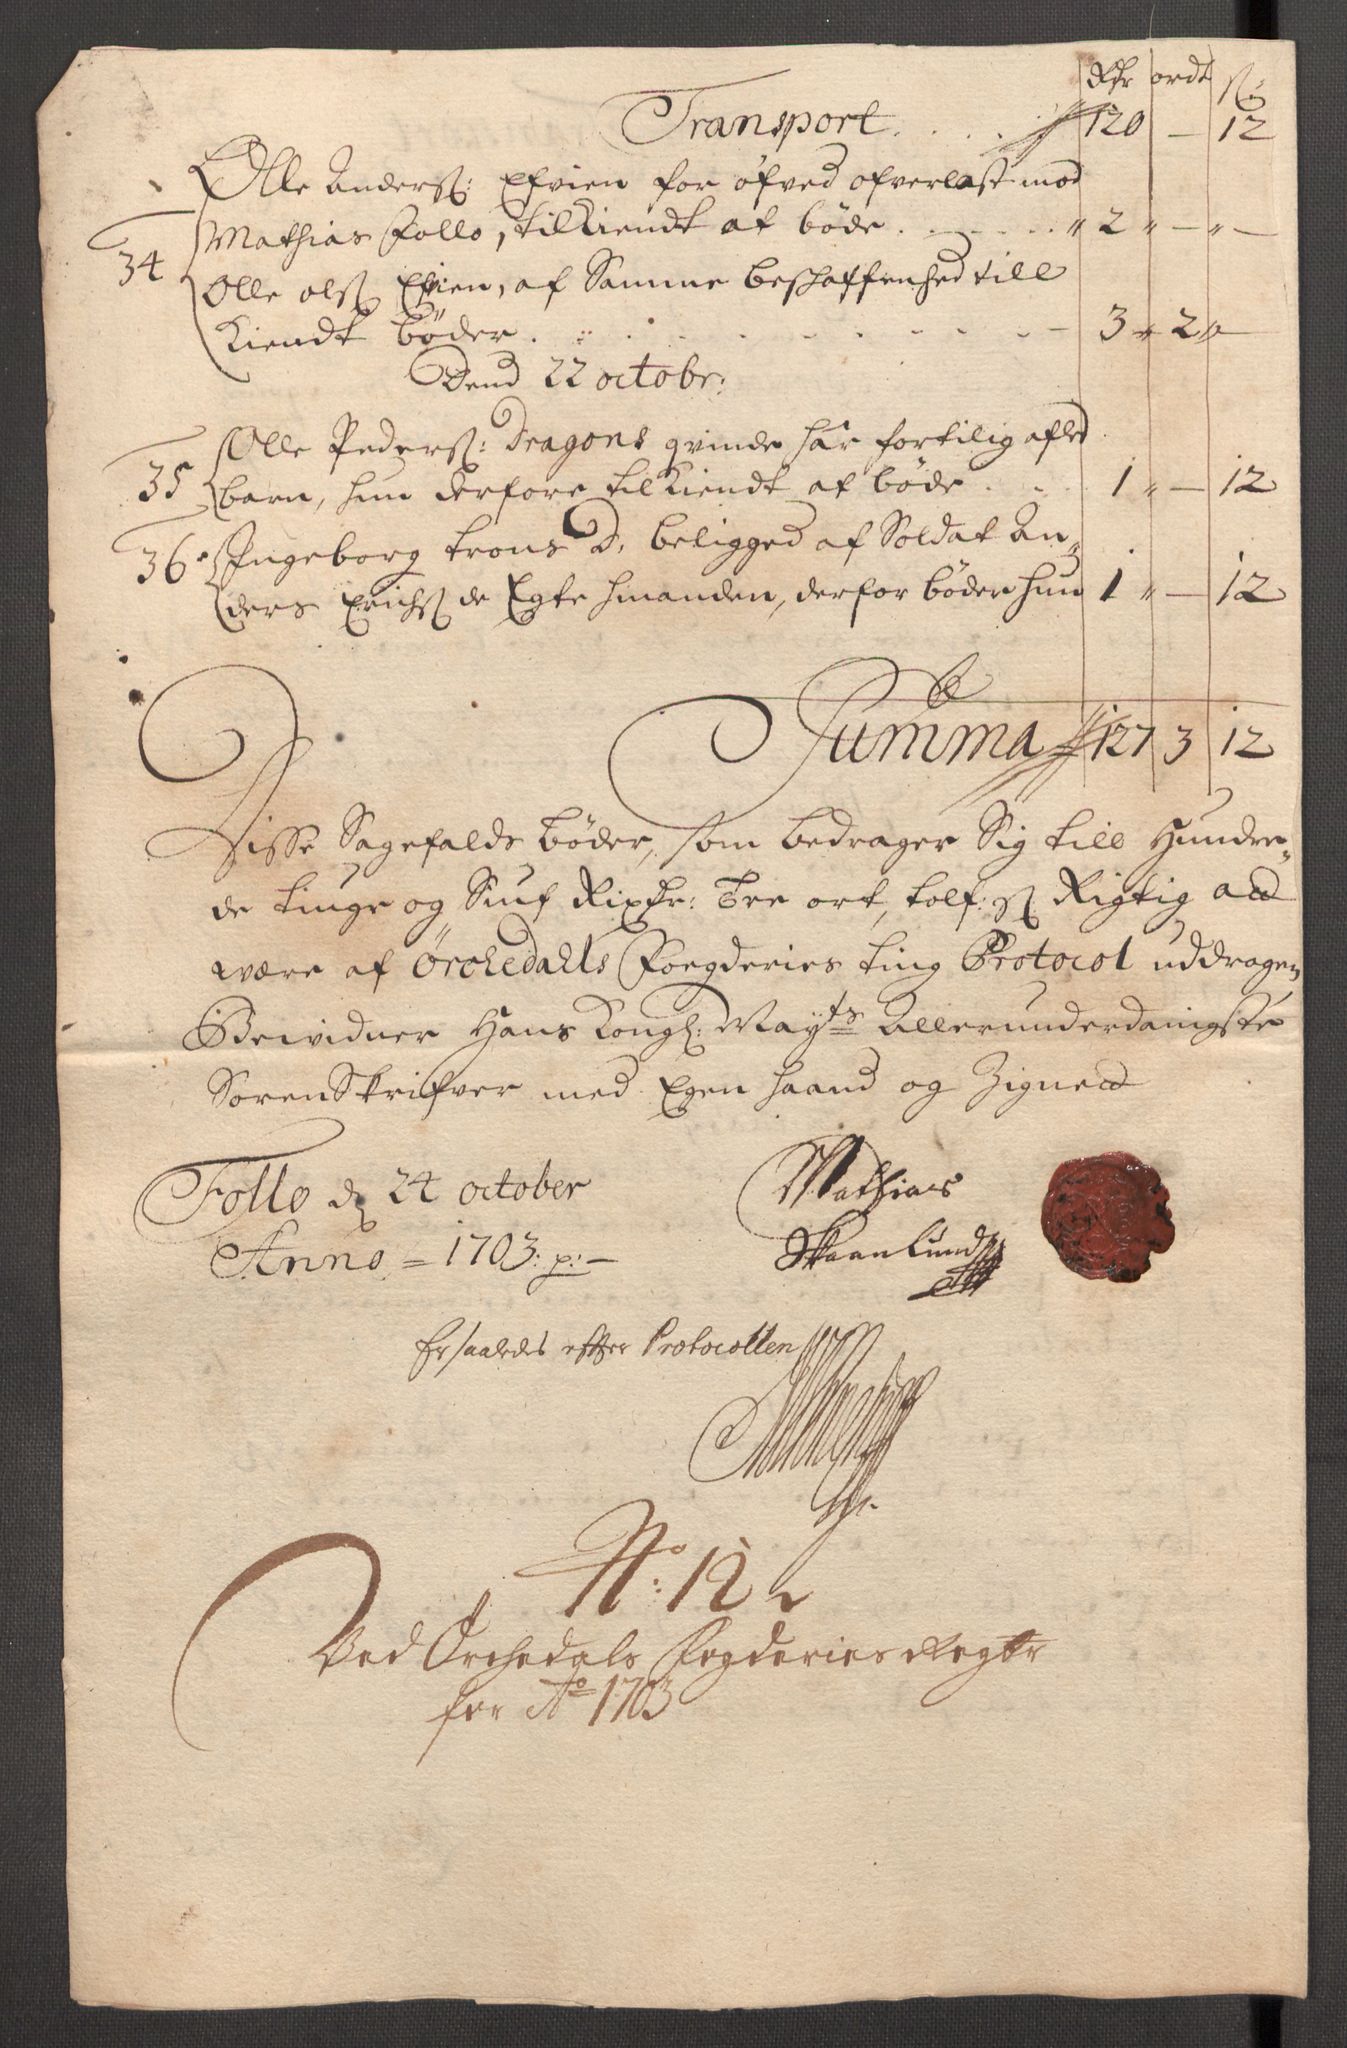 Rdr ordt ß:
Transport . . . . 120 — 12
Olle Anderß: Efvien for öfved ofverlast mod
Mathias Follo, tilkiendt at bøde . — . — . . " 2 " — " —
34
Olle olß Efvien, af Samme beschaffenhed till
kiendt bøder . . . . . . . — 3 " 2 " —
Dend 22 octobr:
35 Olle Pederß: Dragons qvinde har fortilig afled
barn, hun derfore tilkiendt at bøde . . . 1 " — 12
36 Ingeborg trons D. beligged af Soldat An,,
ders Erichß de Egte hmanden, derfor bøder hun 1 " — 12
Summa 127 3 12
Disse Sagefalds bøder, som bedrager Sig till Hundre,,
de tiuge og Siuf Rixdr: Tre ort, tolf ß Rigtig att
være af Örchedahls Foegderies ting Protocol uddragen
Bevidner Hans Kongl: Mayts Allerunderdanigste
SorenSkrifver med Egen haand og Zignett
Follo d 24 october
Anno = 1703: p: —
Mathias
Skaanlund
Er saaledes efter Protocollen
No: 12
Ved Örchedals Fogderies Regnr
for Ao 1703